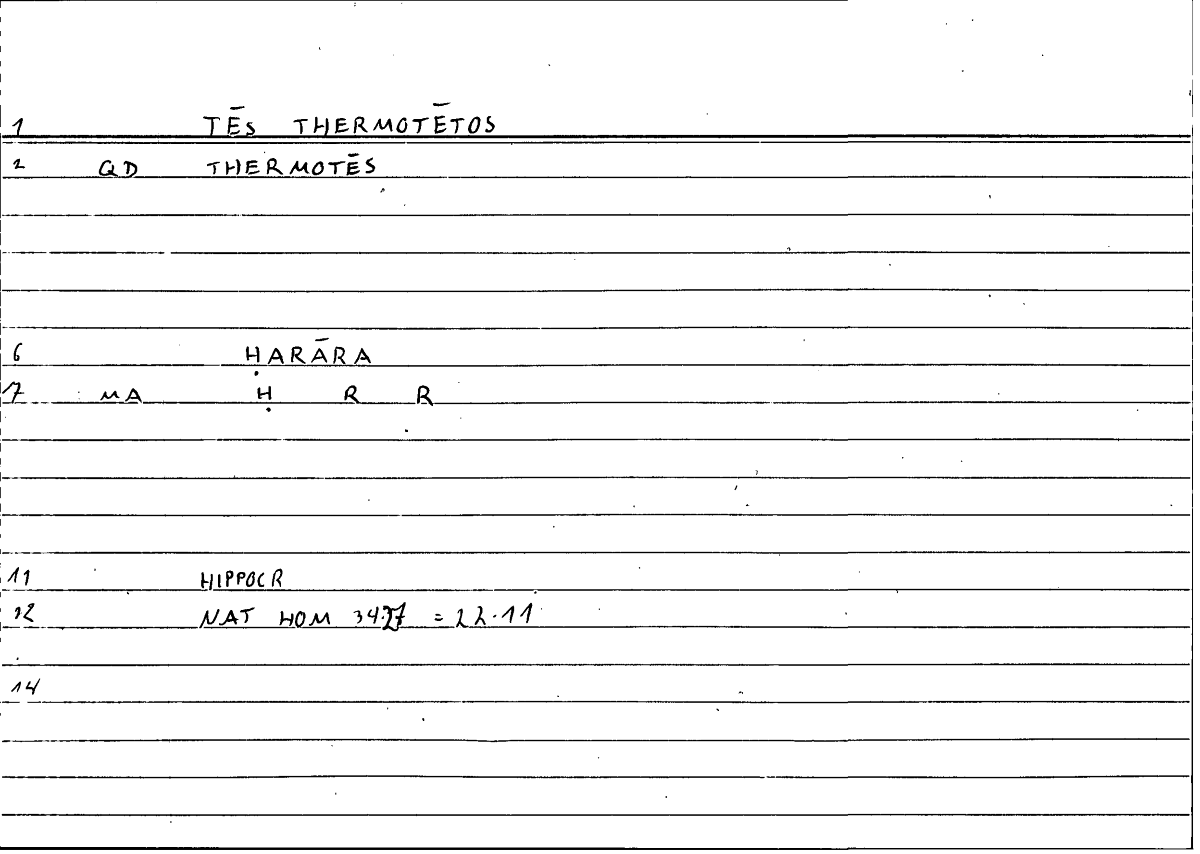 1 TĒS THERMOTĒTOS
2 QD THERMOTĒS
6 ḤARĀRA
7 MA Ḥ R R
11 HIPPOCR
12 NAT HOM 34.27 = 22.11
14